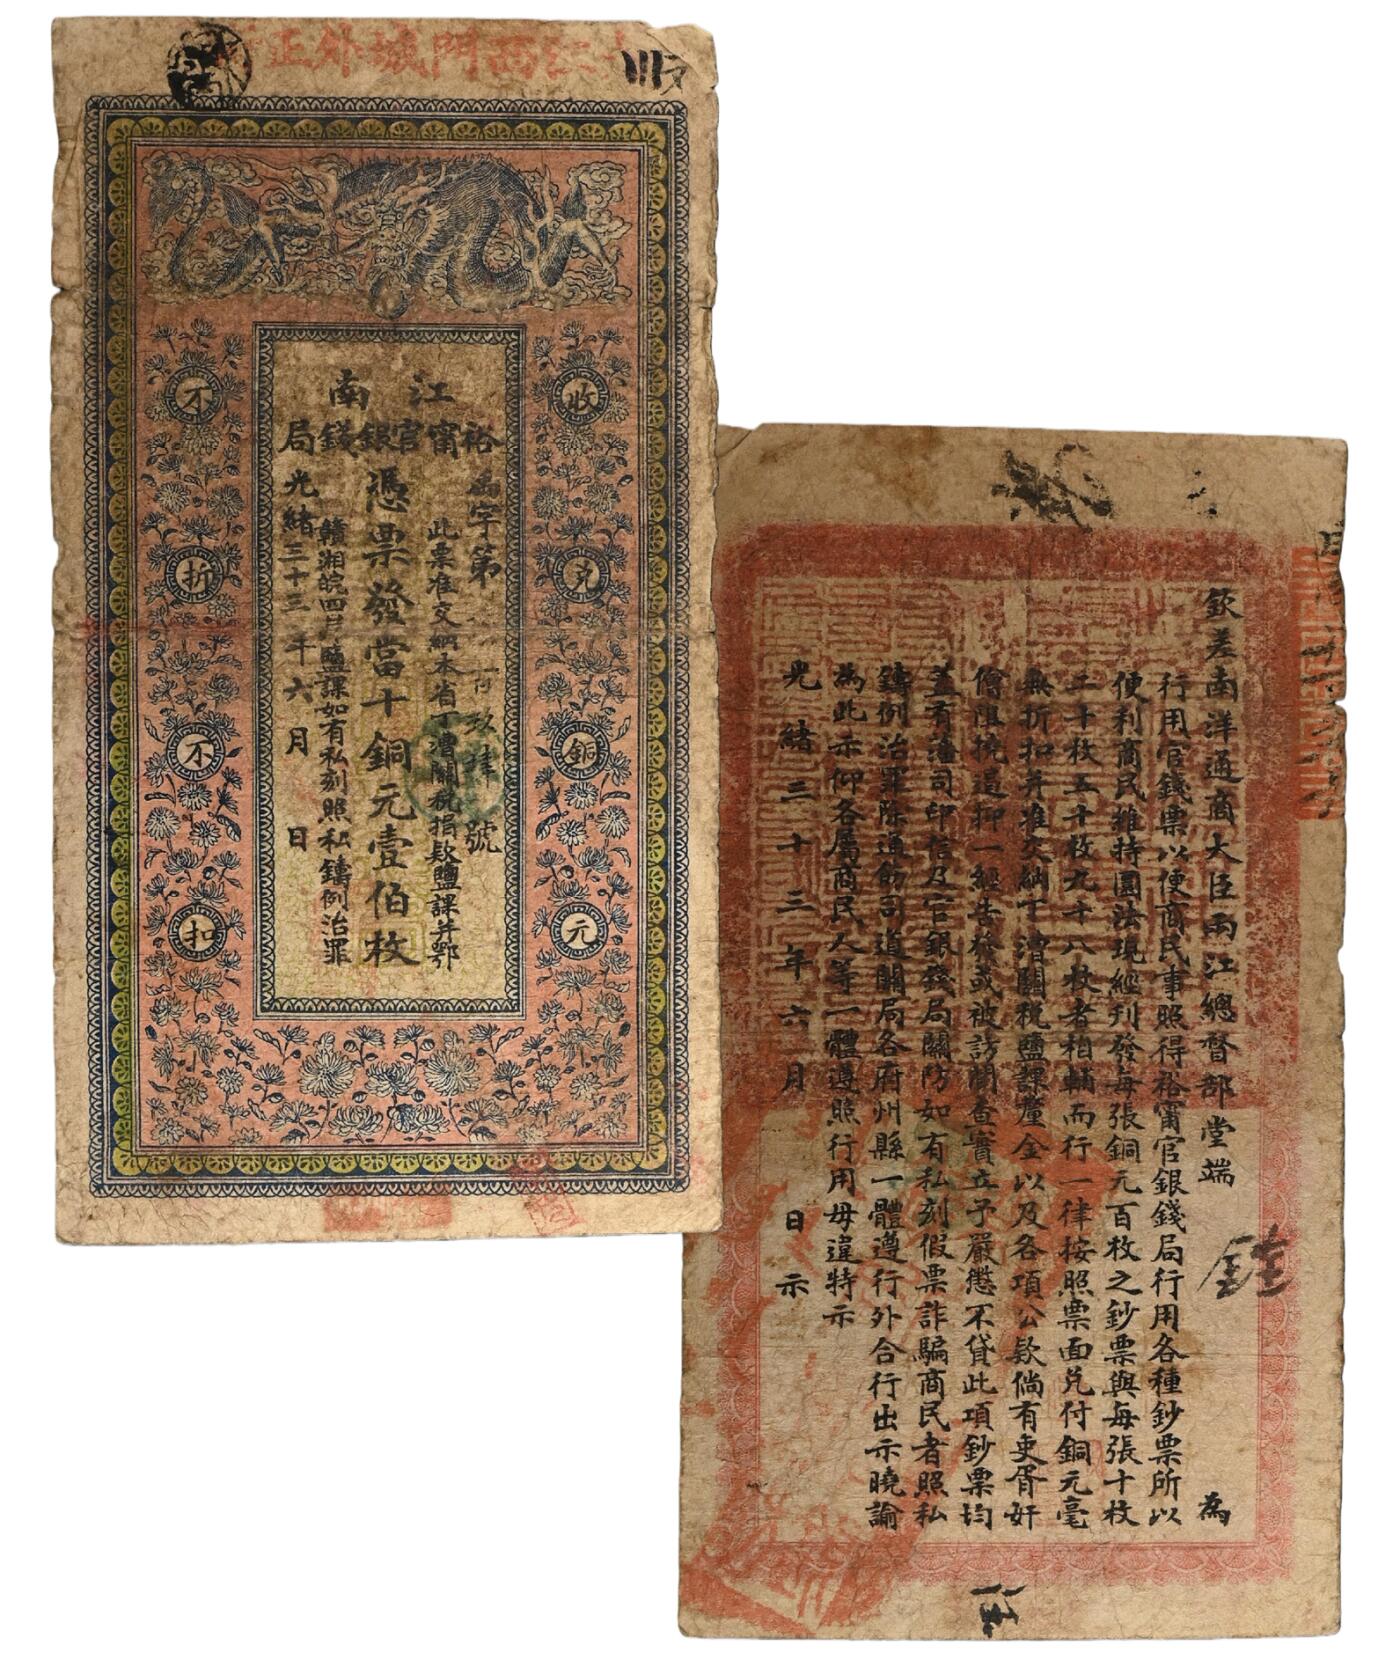 三江西門城外正
江南
裕甯官銀錢局
第號
此票准交納本省丁漕關稅捐款鹽課并鄂
憑票發當十銅元壹佰枚
贛湘皖四岸鹽課如有私刻照私鑄例治罪
光緒三十三年六月 日
收兌銅元
不折不扣
欽差南洋通商大臣兩江總督部堂端 為
行用官錢票以便商民事照得裕甯官銀錢局行用各種鈔票所以
便利商民維持圜法現經刊發每張銅元百枚之鈔票與每張十枚
二十枚五十枚九十八枚者相輔而行一律按照票面兌付銅元毫
無折扣并准交納丁漕關稅鹽課釐金以及各項公款倘有吏胥奸
儈阻撓遏抑一經告發或被訪聞查實立予嚴懲不貸此項鈔票均
蓋有藩司印信及官銀錢局關防如有私刻假票詐騙商民者照私
鑄例治罪除通飭司道關局各府州縣一體遵行外合行出示曉諭
為此示仰各屬商民人等一體遵照行用毋違特示
光緒三十三年六月 日示